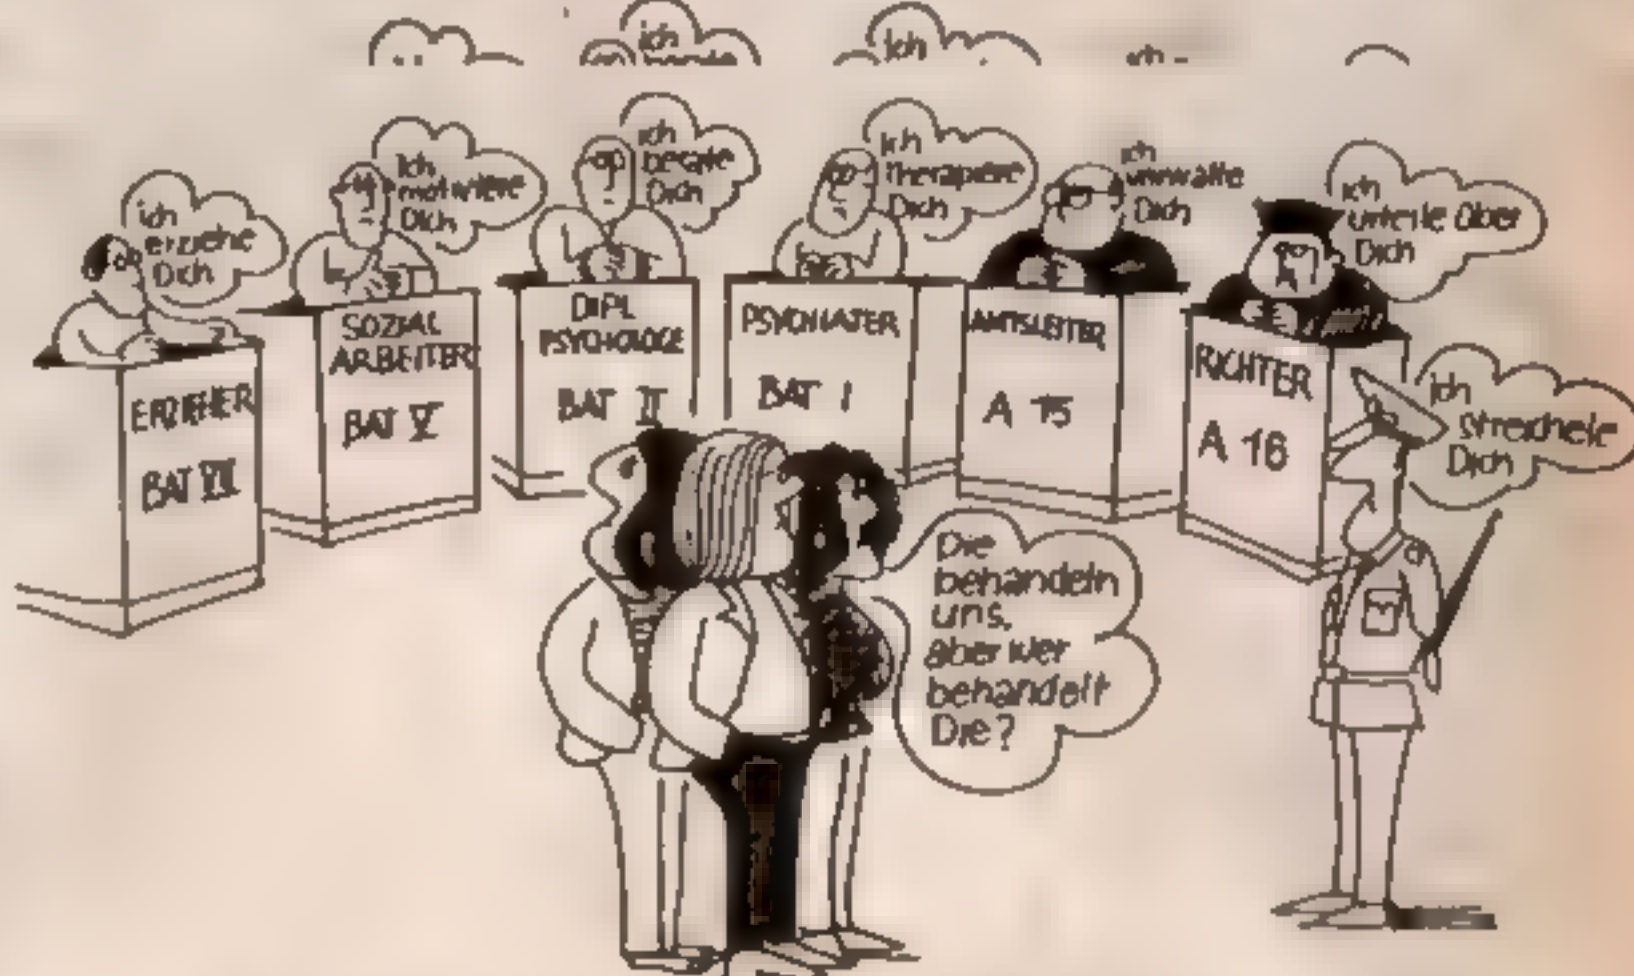 ich
Ich
ich
ich
erziehe
Dich
Ich
motiviere
Dich
ich
berate
Dich
Ich
Therapiere
Dich
ich
verwalte
Dich
ich
urteile über
Dich
Ich
streichele
Dich
ERZIEHER
BAT VII
SOZIAL
ARBEITER
BAT V
DIPL
PSYCHOLOGE
BAT II
PSYCHIATER
BAT I
AMTSLEITER
A 15
RICHTER
A 16
Die
behandeln
uns,
aber wer
behandelt
Die?